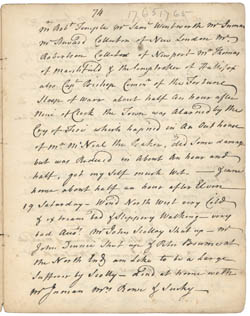 74 1765 1765
Mr Robt Temple Mr Saml Wentworth Mr Inman
Mr Stewart Collector of New London Mr
Robertson Collector of Newport Mr Thomas
of Marshfield & the Comptroller of Hallifax
also Capt Bishop Comr of the Fortune
Sloop of Warr about half an hour after
Nine o'Clock the Town was Alarmed by the
Cry of Fire which hapned in An Out house
of Mr McNeal the Baker, did Some damage
but was Reduced in about An hour and
half, got my Self much Wet
home about half an hour after Eleven
19 Saturday - Wind North West very Cold
& extream bad & Slippery Walking - very
bad Mr John Scollay Shut up - Mr
John Shut up & Peter Bourn at
the North End am like to be a Large
Sufferer by Scolly - Dind at home with
Mr Inman Mrs Rowe & Sucky -